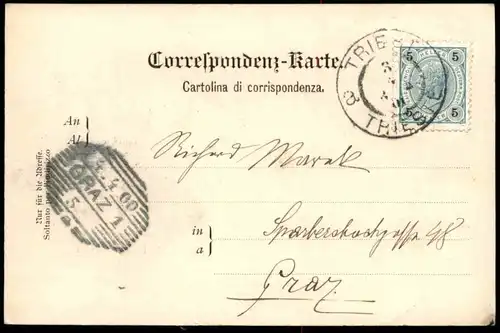 Correspondenz-Karte.
Cartolina di corrispondenza.
TRIEST
TRIESTE
8
5 5
5 5
An
Al
Nur für die Adresse.
Soltanto per l'indirizzo
4 00
GRAZ 1
5
Richard Marek
in
a
Sparbersbachgasse 48
Graz